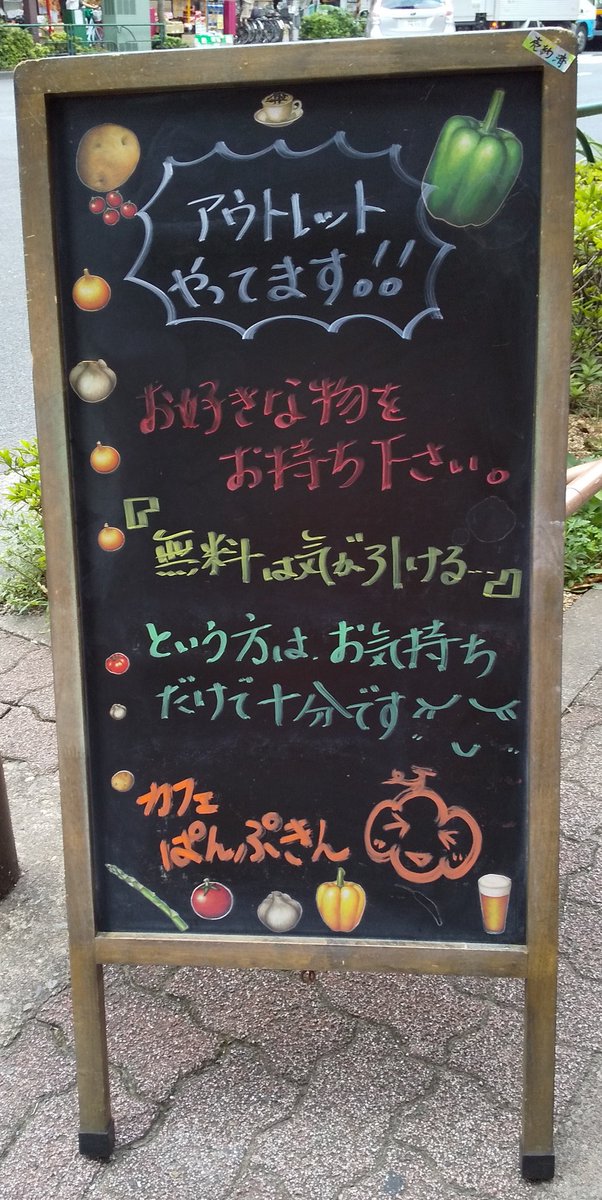 売約済
アウトレット
やってます!!
お好きな物を
お持ち下さい。
『無料は気が引ける…』
という方は、お気持ち
だけで十分です
カフェ
ぱんぷきん